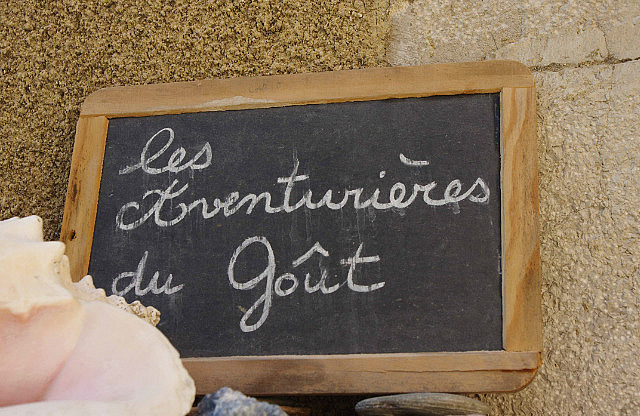 les
Aventurières
du Goût